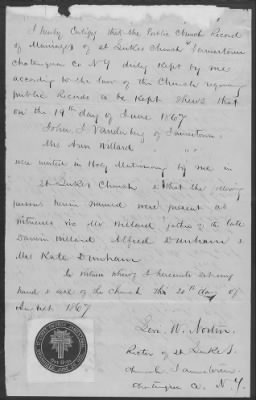 I hereby Certify that the Public Church Record
of Marriages of St Lukes Church Jamestown
Chatauque Co N.Y. duly Kept by me
according to the law of the Church requiring
public Records to be kept shews that
on the 19th day of June 1867
John J. Vanderburg of Jamestown
Mrs Ann Willard " "
were united in Holy Matrimony by me in
St Lukes Church & that the following
persons herein named were present as
witnesses viz Mr Willard father of the late
Darwin Willard Alfred Dunham &
Mrs Kate Dunham
In witness whereof I hereunto set my
hand & seal of the Church this 20th day of
1867
Levi W. Norton
Rector of St Luke's
Church Jamestown
Chatauque Co. N.Y.